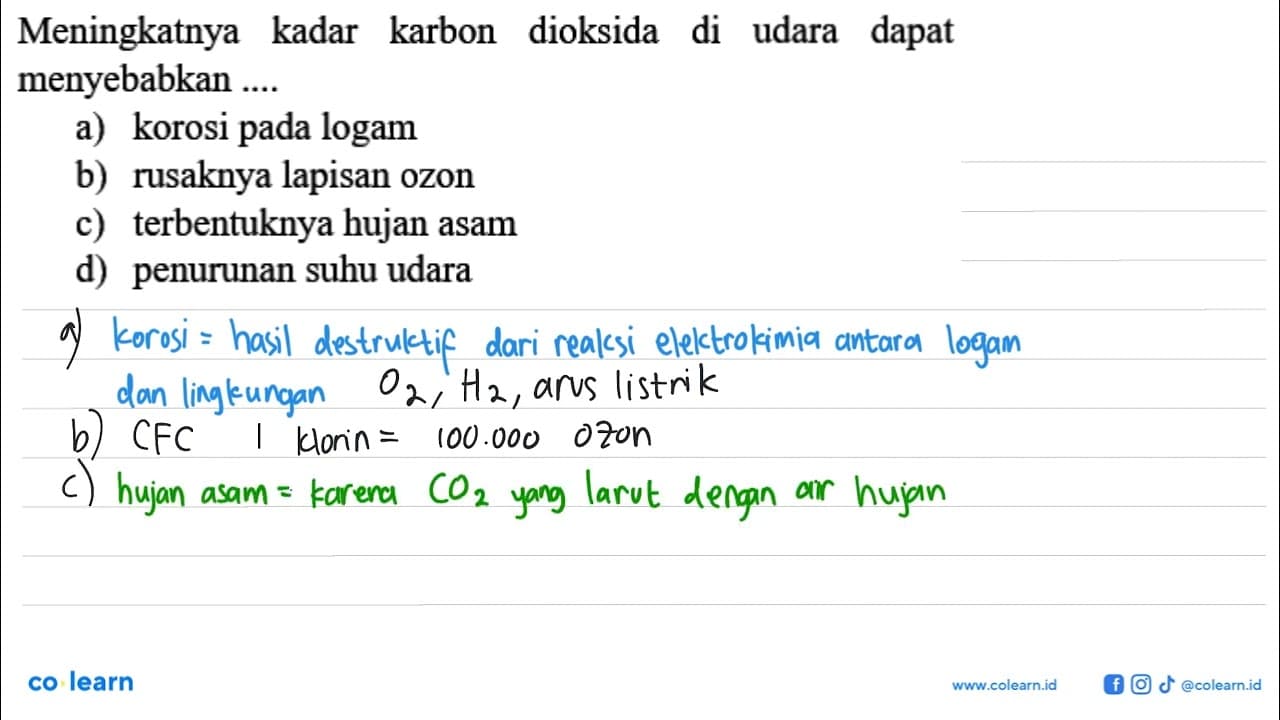 Meningkatnya kadar karbon dioksida di udara dapat
menyebabkan ....
a) korosi pada logam
b) rusaknya lapisan ozon
c) terbentuknya hujan asam
d) penurunan suhu udara
a) korosi = hasil destruktif dari reaksi elektrokimia antara logam
dan lingkungan O2, H2, arus listrik
b) CFC 1 klorin = 100.000 ozon
c) hujan asam = karena CO2 yang larut dengan air hujan
co learn
www.colearn.id
@colearn.id